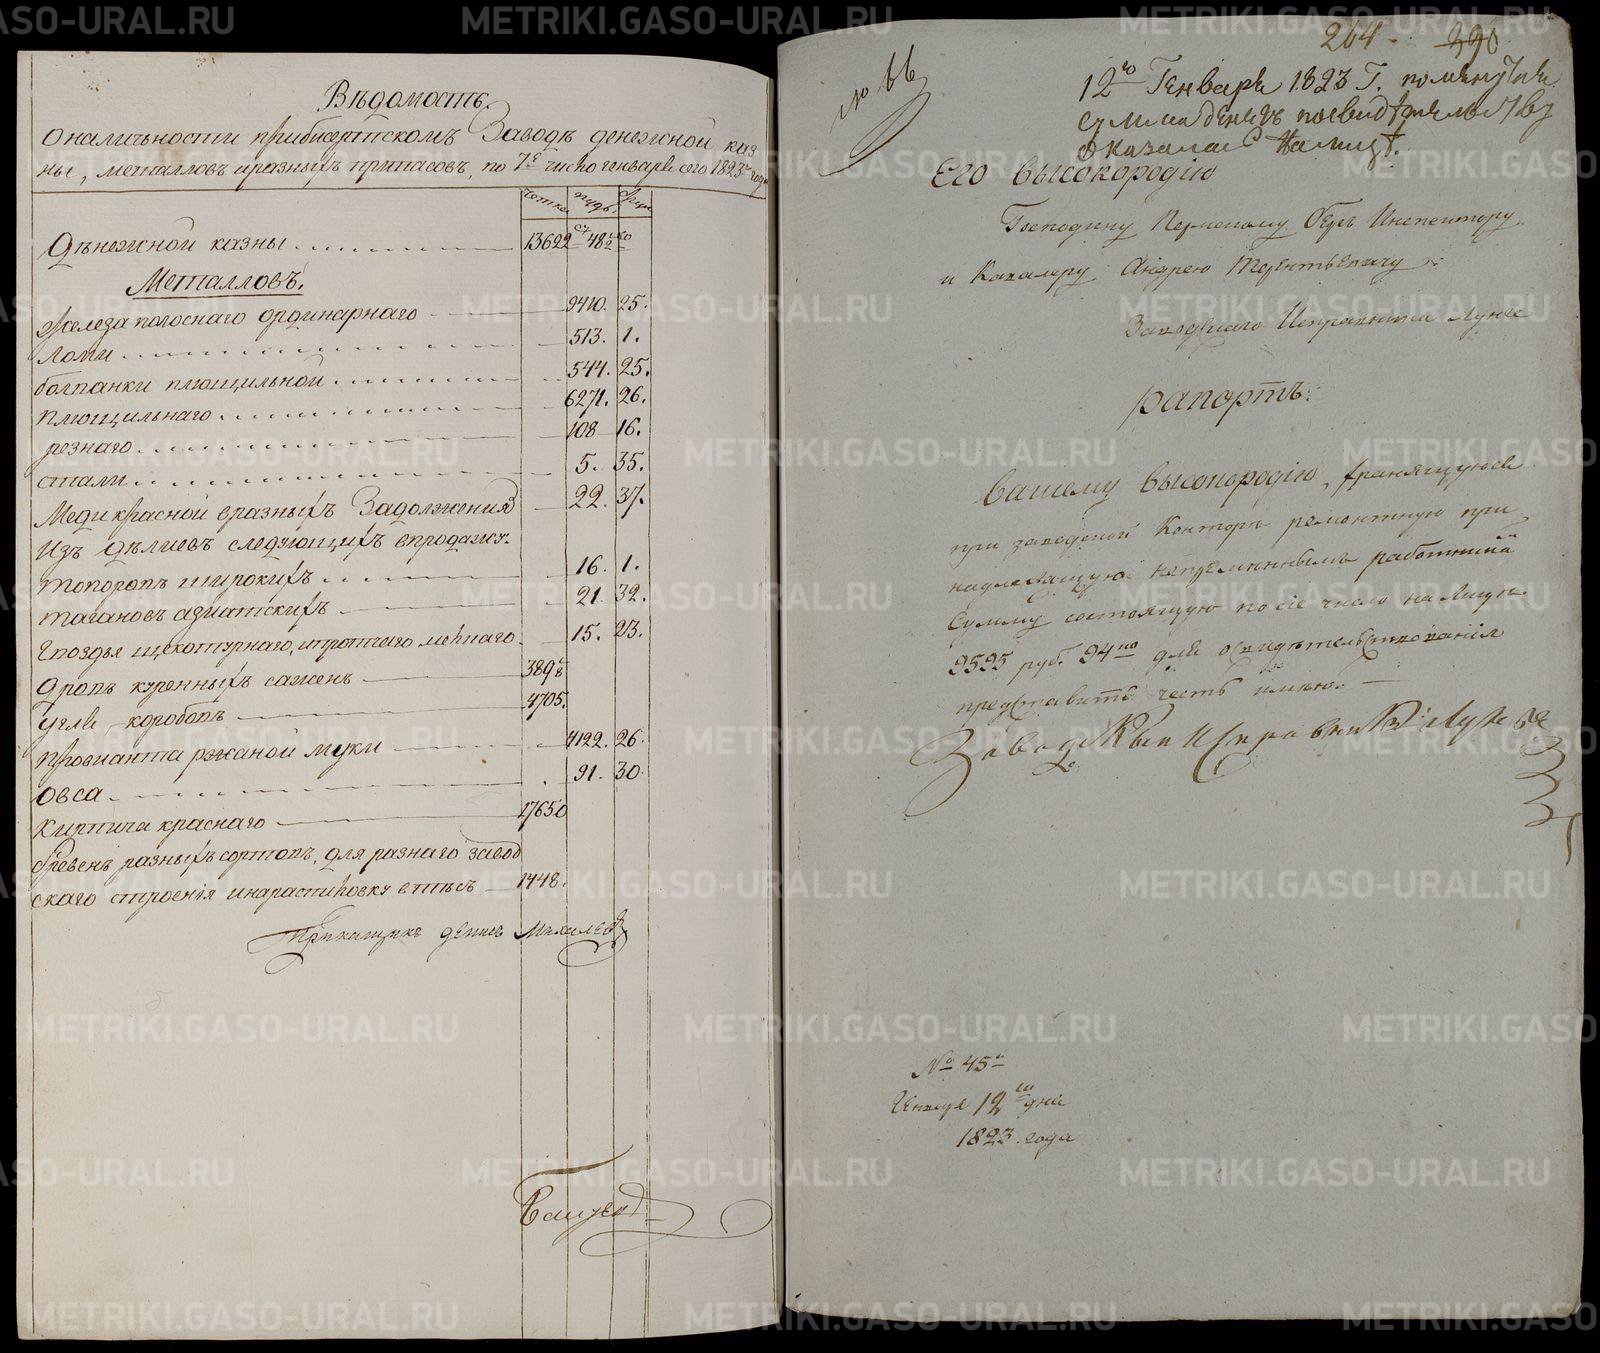 Вѣдомость
о наличности при бисертскомъ Заводѣ денежной каз
ны, металловъ и разныхъ припасовъ, по 7е число генваря сего 1823го года
четки пуды фун
Дѣнежной казны 13622 48 2/2
Металловъ.
Железа полоснаго ординарнаго 9410. 25.
Ломи 513. 1.
болпанки плющильной 544. 25.
плющильнаго 6271. 26.
резнаго 108 16.
стали 5. 35.
Меди красной в разныхъ Задолжения 22. 37.
Изъ дѣлиевъ следующихъ в продажу.
топоровъ широкихъ 16. 1.
тагановъ азиатскихъ 21. 32.
Гвоздья щекотурнаго, и протчего мелкаго 15. 23.
Дровъ куренныхъ сажень 389
угля коробовъ 4705.
Провианта ржаной муки 4122. 26.
овса 91. 30.
Кирпича краснаго 17650
бревенъ разныхъ сортовъ, для разнаго завод
скаго строенія и на распиловку в тесъ 1448.
Прикащикъ денисъ Михалев
264. 390
№ 66
12го Генваря 1823 Г. помянутая
сумма денегъ по свидѣтельству
оказалас налицо.
Его высокородію
Господину Пермскому Бергъ Инспектору
и Кавалеру Андрею Терентьевичу
Заводскаго Исправника Лунева
рапортъ.
Вашему Высокородію, хранящуюся
при заводской Конторѣ ремонтную при
надлежащую непременнымъ работникамъ
Сумму состоящую по сіе число на лицо
9595 руб. 94 ко для освидѣтельствованія
представить честь имѣю.
Заводскый Исправникъ Лунев
№ 45й
Генваря 12го дня
1823 года
METRIKI.GASO-URAL.RU